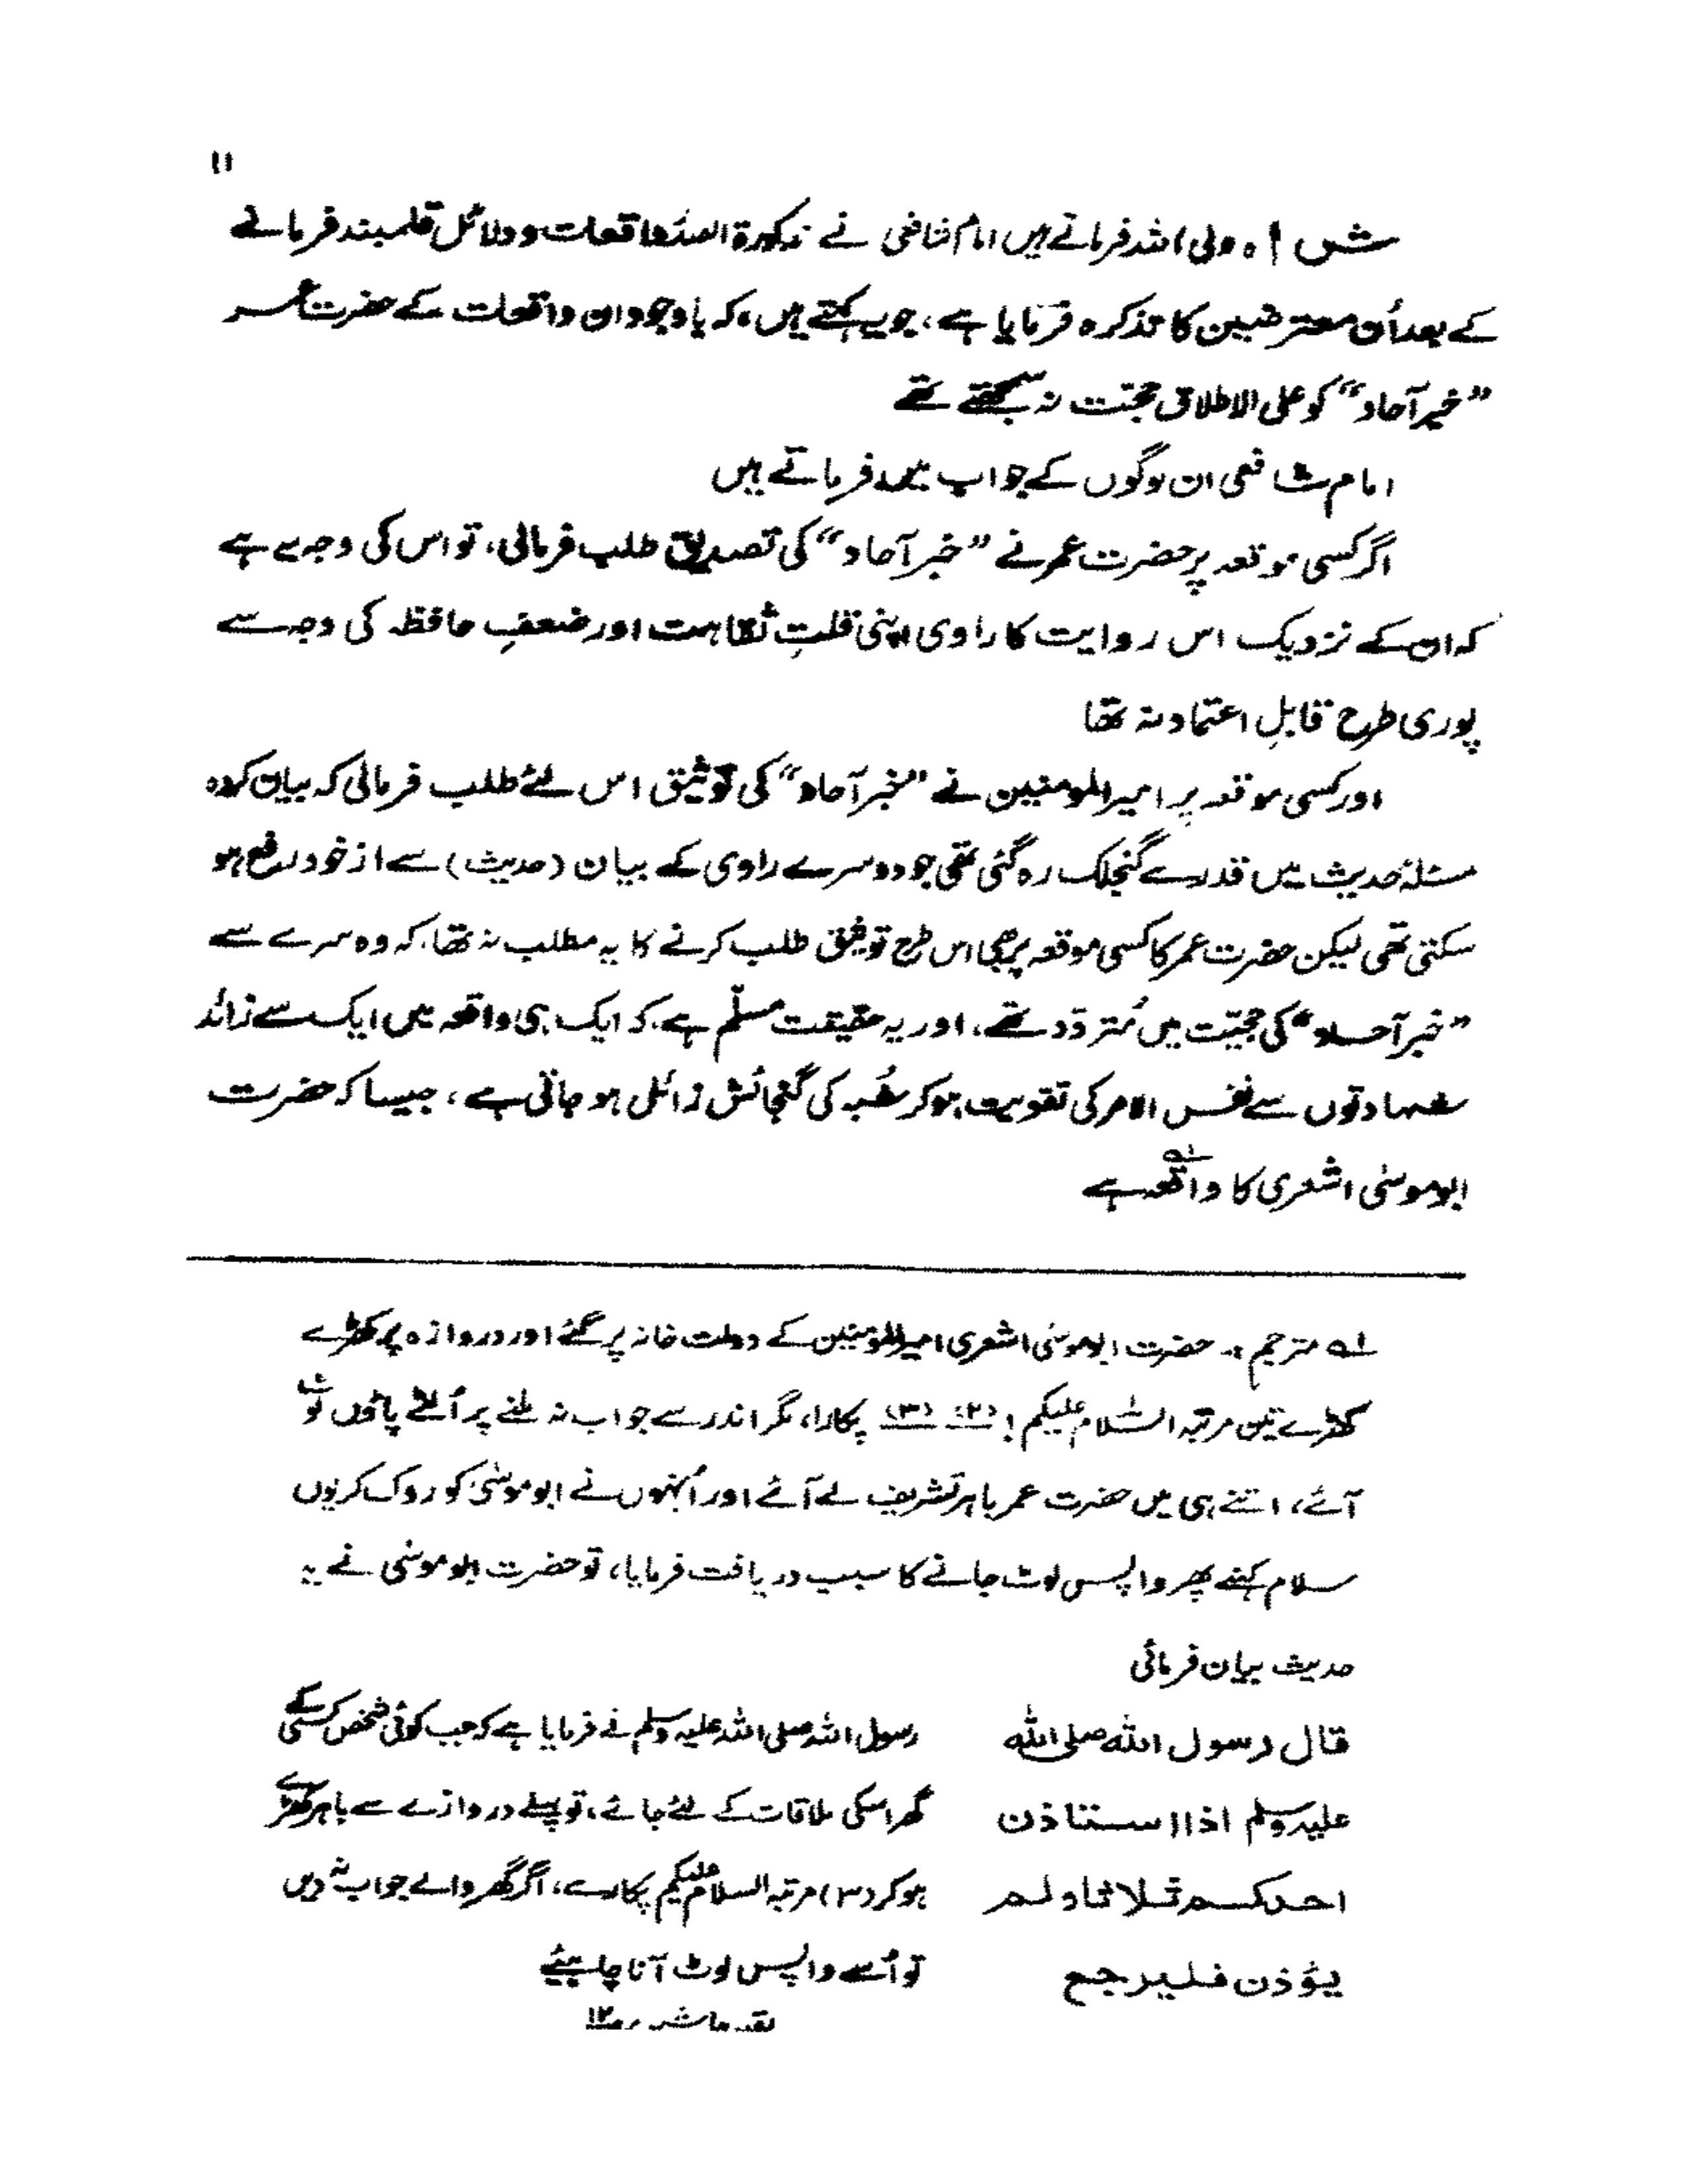 ۱۱
شاہ ولی اللہ فرماتے ہیں امام شافعی نے مذکورۃ الصدر واقعات و دلائل قلمبند فرمانے
کے بعد اُن معترضین کا تذکرہ فرمایا ہے، جو یہ کہتے ہیں، کہ باوجود ان واقعات کے حضرت عمر
”خبر آحاد“ کو علی الاطلاق حجّت نہ سمجھتے تھے
امام شافعی ان لوگوں کے جواب میں فرماتے ہیں
اگر کسی موقعہ پر حضرت عمر نے ”خبر آحاد“ کی تصدیق طلب فرمائی، تو اس کی وجہ یہ ہے
کہ ان کے نزدیک اس روایت کا راوی اپنی قلتِ ثقاہت اور ضعفِ حافظہ کی وجہ سے
پوری طرح قابلِ اعتماد نہ تھا
اور کسی موقعہ پر امیر المومنین نے ”خبر آحاد“ کی توثیق اس لئے طلب فرمائی کہ بیان کردہ
مسئلۂ حدیث میں قدرے گنجلک رہ گئی تھی جو دوسرے راوی کے بیان (حدیث) سے از خود رفع ہو
سکتی تھی لیکن حضرت عمر کا کسی موقعہ پر بھی اس طرح توثیق طلب کرنے کا یہ مطلب نہ تھا، کہ وہ سرے سے
”خبر آحاد“ کی حجیّت میں مُتردّد تھے، اور یہ حقیقت مسلّم ہے، کہ ایک ہی واقعہ میں ایک سے زائد
شہادتوں سے نفس الامر کی تقویت ہو کر شُبہ کی گنجائش زائل ہو جاتی ہے، جیسا کہ حضرت
ابو موسٰی اشعری کا واقعہ ہے ؎۱
؎۱ مترجم :۔ حضرت ابو موسٰی اشعری امیر المؤمنین کے دولت خانہ پر گئے اور دروازہ پر کھڑے
کھڑے تین مرتبہ السّلام علیکم! (۲) (۳) پکارا، مگر اندر سے جواب نہ ملنے پر اُلٹے پاؤں لوٹ
آئے، اتنے ہی میں حضرت عمر باہر تشریف لے آئے اور اُنہوں نے ابو موسٰی کو روک کر یوں
سلام کہنے پھر واپس لوٹ جانے کا سبب دریافت فرمایا، تو حضرت ابو موسٰی نے یہ
حدیث بیان فرمائی
قال رسول اللہ صلی اللہ
علیہ وسلم اذا استاذن
احدکم ثلاثا ولم
یؤذن فلیرجع
رسول اللہ صلی اللہ علیہ وسلم نے فرمایا ہے کہ جب کوئی شخص کسی کے
گھر اسکی ملاقات کے لئے جائے، تو پہلے دروازے سے باہر کھڑے
ہو کر (۳) مرتبہ السلام علیکم پکارے، اگر گھر والے جواب نہ دیں
تو اُسے واپس لوٹ آنا چاہیئے